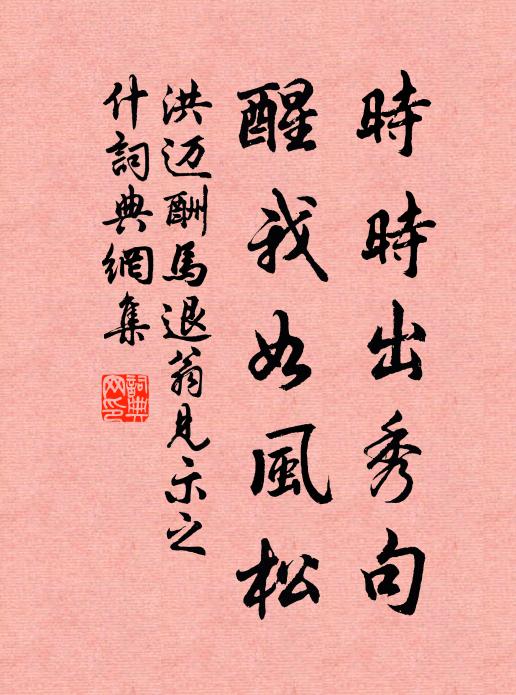 時時出秀句
醒我如風松
洪迈酬馬退翁見示之
什詞典網集
詞典
网印